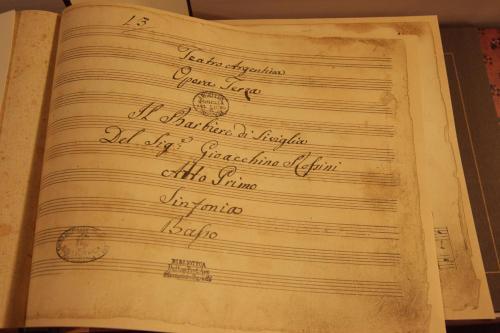 13
Teatro Argentina
Opera Terza
Il Barbiere di Siviglia
Del Sigʳ Gioacchino Rossini
Atto Primo
Sinfonia
Basso
BIBLIOTECA